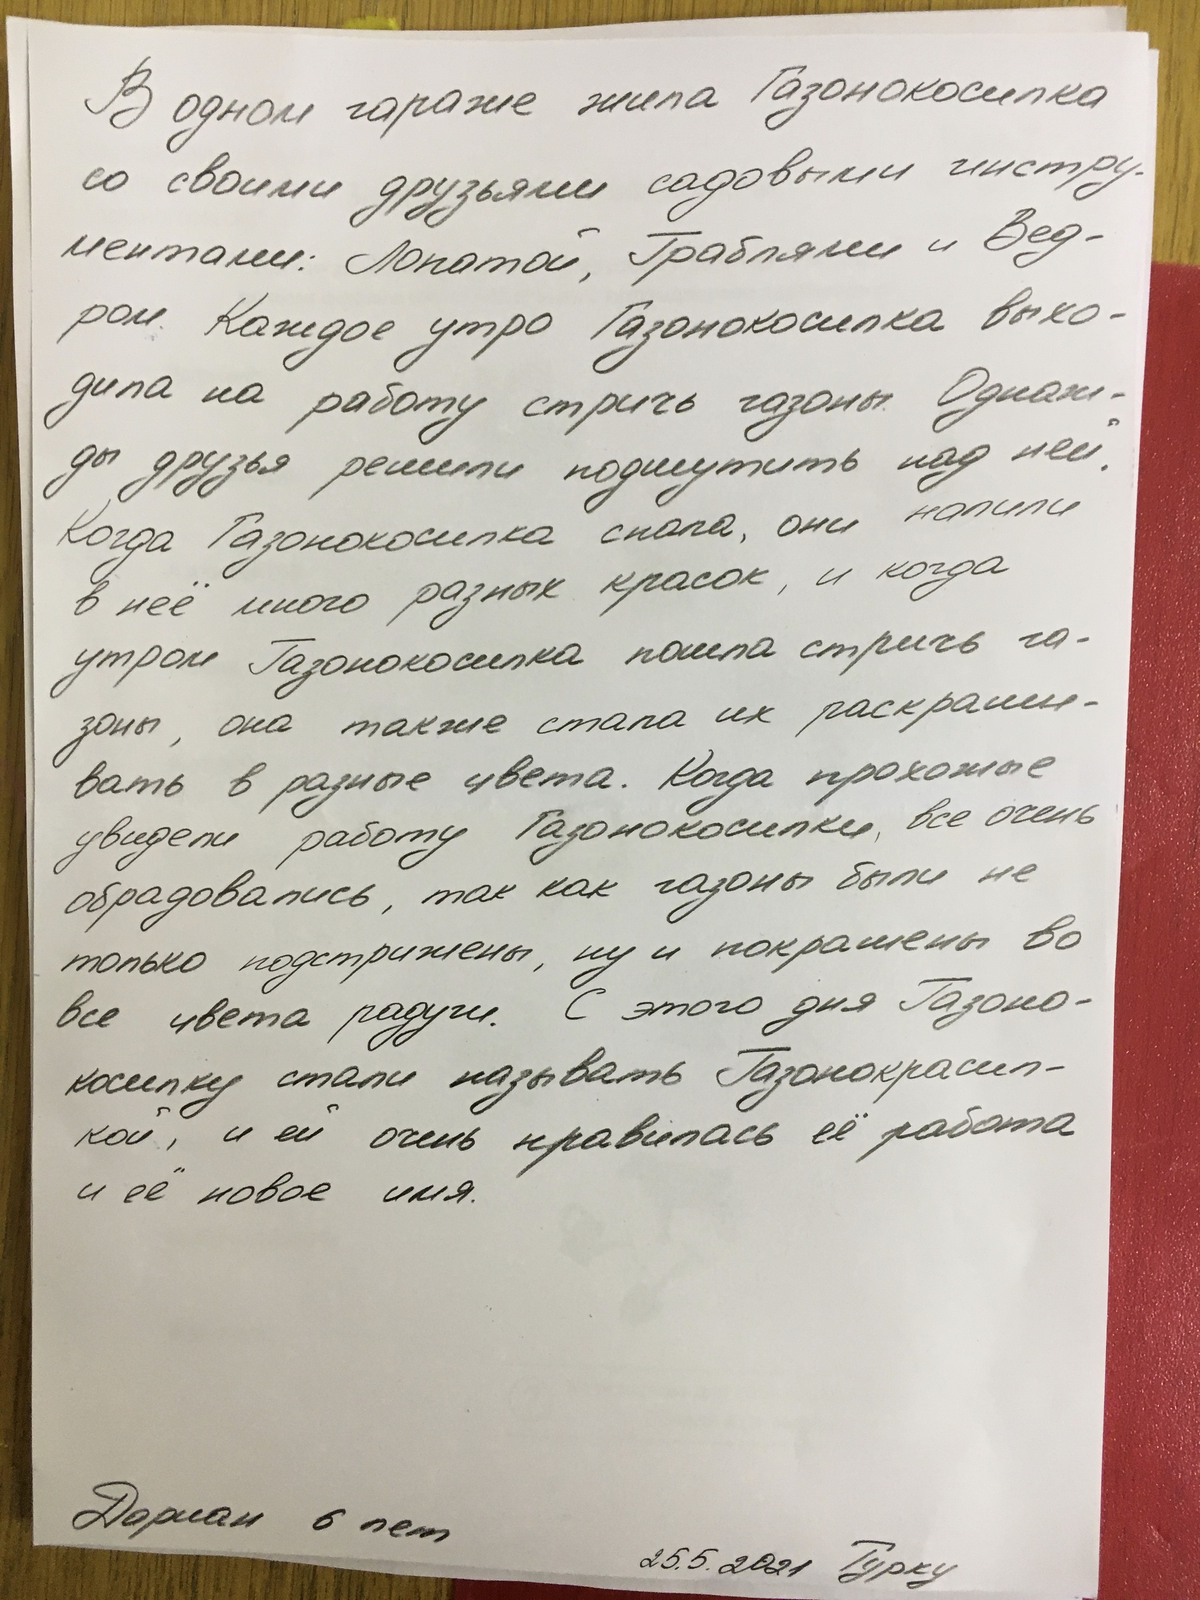 В одном гараже жила Газонокосилка
со своими друзьями садовыми инстру-
ментами: Лопатой, Граблями и Вед-
ром. Каждое утро Газонокосилка выхо-
дила на работу стричь газоны. Однаж-
ды друзья решили подшутить над ней.
Когда Газонокосилка спала, они налили
в неё много разных красок, и когда
утром Газонокосилка пошла стричь га-
зоны, она также стала их раскраши-
вать в разные цвета. Когда прохожие
увидели работу Газонокосилки, все очень
обрадовались, так как газоны были не
только подстрижены, ну и покрашены во
все цвета радуги. С этого дня Газоно-
косилку стали называть Газонокрасил-
кой, и ей очень нравилась её работа
и её новое имя.
Дориан 6 лет
25.5.2021 Турку